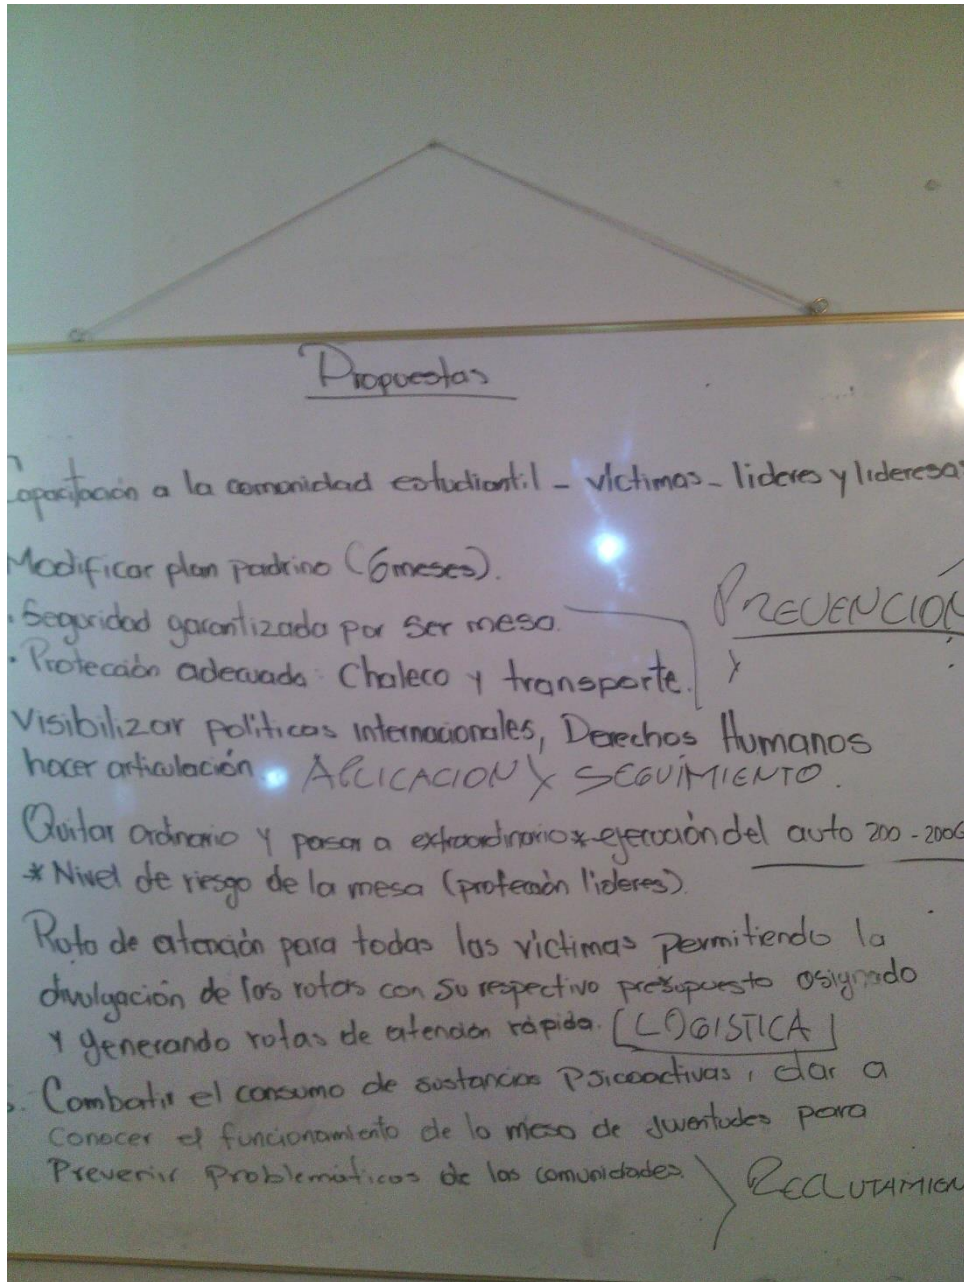 Propuestas
Capacitación a la comunidad estudiantil - víctimas - lideres y lideresas
Modificar plan padrino (6 meses).
· Seguridad garantizada por ser mesa.
· Protección adecuada: Chaleco y transporte.
PREVENCIÓN
Visibilizar políticas internacionales, Derechos Humanos
hacer articulación. APLICACION Y SEGUIMIENTO.
Quitar ordinario y pasar a extraordinario * ejecución del auto 200-200
* Nivel de riesgo de la mesa (protección lideres).
Ruta de atención para todas las victimas permitiendo la
divulgación de las rutas con su respectivo presupuesto asignado
y generando rutas de atención rápida. [LOGISTICA]
Combatir el consumo de sustancias Psicoactivas, dar a
conocer el funcionamiento de la mesa de Juventudes para
Prevenir Problemáticas de las comunidades.
RECLUTAMIEN